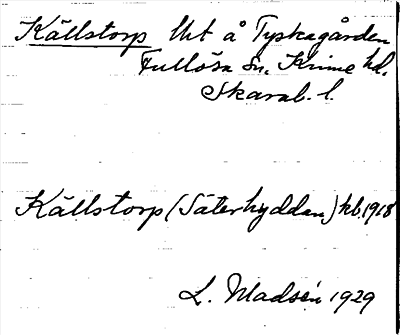 Källstorp Uit å Tyskagården
Fullösa Sn. Kinne hd.
Skarab. l.
Källstorp (Säterhyddan) kb. 1918
L. Madsén 1929